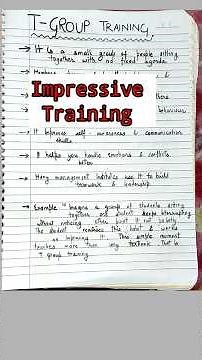 T-GROUP TRAINING
→ It is a small group of people sitting
together with no fixed agenda
Impressive
Training
there
behaviour
→ It improves self-awareness & communication
skills
→ It helps you handle emotions & conflicts
better
→ Many management institutes use it to build
teamwork & leadership.
→ Example: Imagine a group of students sitting
together. One student keeps interrupting
without noticing. Others point it out politely.
The student realises this habit & works
on improving it. This simple moment
teaches more than any textbook. That is
T group training.